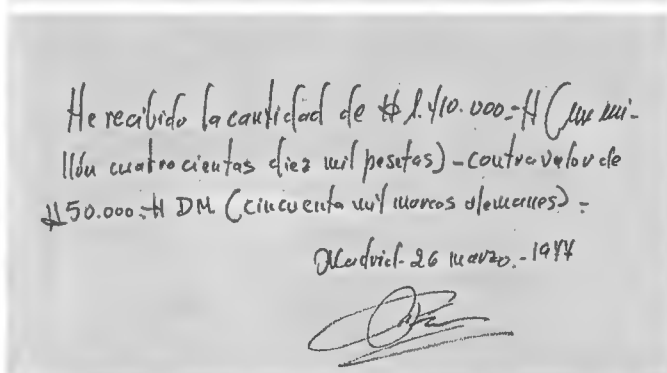 He recibido la cantidad de # 1.410.000.-# (un mi-
llón cuatrocientas diez mil pesetas) - contravalor de
#50.000.-# DM (cincuenta mil marcos alemanes) -
Madrid - 26 marzo. - 1977